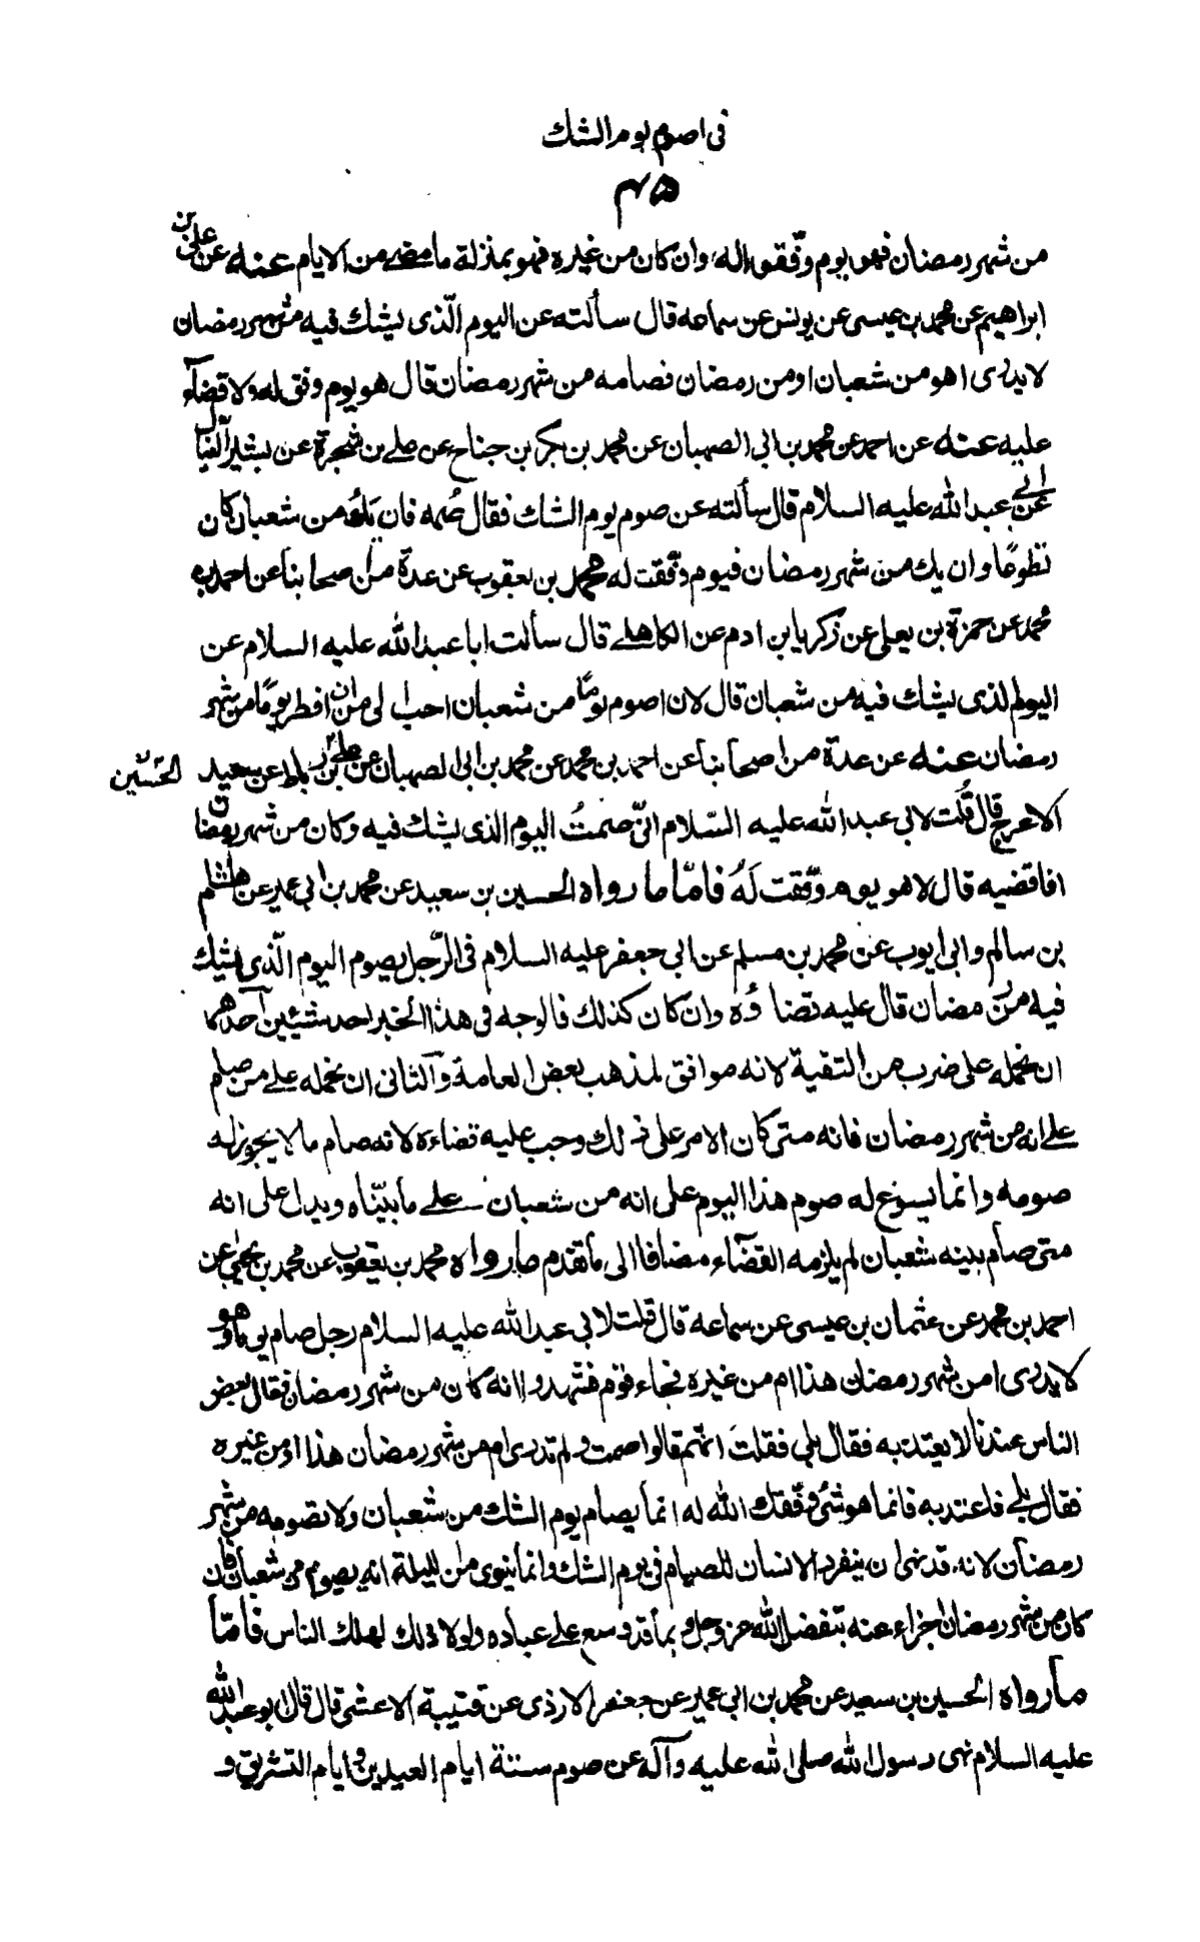 فى اصوم يوم الشك
۴۵
من شهر رمضان فهو يوم وفّقوا له وان كان من غيره فهو بمنزلة ما مضى من الايام عنه عن على بن
ابراهيم عن محمد بن عيسى عن يونس عن سماعه قال سألته عن اليوم الّذى يشك فيه من شهر رمضان
لا يدرى اهو من شعبان او من رمضان فصامه من شهر رمضان قال هو يوم وفق له ولا قضآء
عليه عنه عن احمد عن محمد بن ابى الصهبان عن محمد بن بكر بن جناح عن على بن شجرة عن بشير النبال
عن ابى عبد الله عليه السلام قال سألته عن صوم يوم الشك فقال صُمه فان يك من شعبان كان
تطوعًا وان يك من شهر رمضان فيوم وفّقت له محمد بن يعقوب عن عدة من اصحابنا عن احمد بن
محمد عن حمزة بن يعلى عن زكريا بن ادم عن الكاهلى قال سألت ابا عبد الله عليه السلام عن
اليوم الذى يشك فيه من شعبان قال لان اصوم يومًا من شعبان احب الى من ان افطر يومًا من شهر
رمضان عنه عن عدة من اصحابنا عن احمد بن محمد عن محمد بن ابى الصهبان عن على بن رباط عن سعيد
الحسين
الاعرج قال قُلت لابى عبد الله عليه السّلام انّى صمتُ اليوم الذى يشك فيه وكان من شهر رمضان
افاقضيه قال لا هو يوم وفّقت لَهُ فامّا ما رواه الحسين بن سعيد عن محمد بن ابى عمير عن هشام
بن سالم وابى ايوب عن محمد بن مسلم عن ابى جعفر عليه السلام فى الرّجل يصوم اليوم الّذى يشك
فيه من رمضان قال عليه قضاؤه وان كان كذلك فالوجه فى هذا الخبر احد شيئين احدهما
ان نحمله على ضرب من التقية لانه موافق لمذهب بعض العامة وآلثانى ان نحمله على من صام
على انه من شهر رمضان فانه متى كان الامر على ذلك وجب عليه قضاءه لانه صام ما لا يجوز له
صومه وانما يسوغ له صوم هذا اليوم على انه من شعبان على ما بيّناه ويدل على انه
متى صام بنيه شعبان لم يلزمه القضآء مضافا الى ما تقدم ما رواه محمد بن يعقوب عن محمد بن يحيى عن
احمد بن محمد عن عثمان بن عيسى عن سماعه قال قلت لابى عبد الله عليه السلام رجل صام يوما وهو
لا يدرى امن شهر رمضان هذا ام من غيره فجاء قوم فشهدوا انه كان من شهر رمضان فقال بعض
الناس عندنا لا يعتد به فقال بلى فقلت انّهم قالوا صمت ولم تدرى ام من شهر رمضان هذا او من غيره
فقال بلى فاعتد به فانما هو شئ وفّقك الله له انما يصام يوم الشك من شعبان ولا تصومه من شهر
رمضان لانه قد نهى ان ينفرد الانسان للصيام فى يوم الشك وانما ينوى من الليلة انه يصوم من شعبان فان
كان من شهر رمضان اجزاء عنه بتفضل الله عز وجل وبما قد وسع على عباده ولولا ذلك لهلك الناس فامّا
ما رواه الحسين بن سعيد عن محمد بن ابى عمير عن جعفر الازدى عن قتيبة الاعشى قال قال ابو عبد الله
عليه السلام نهى رسول الله صلى الله عليه وآله عن صوم ستة ايام العيدين وايام التشريق و